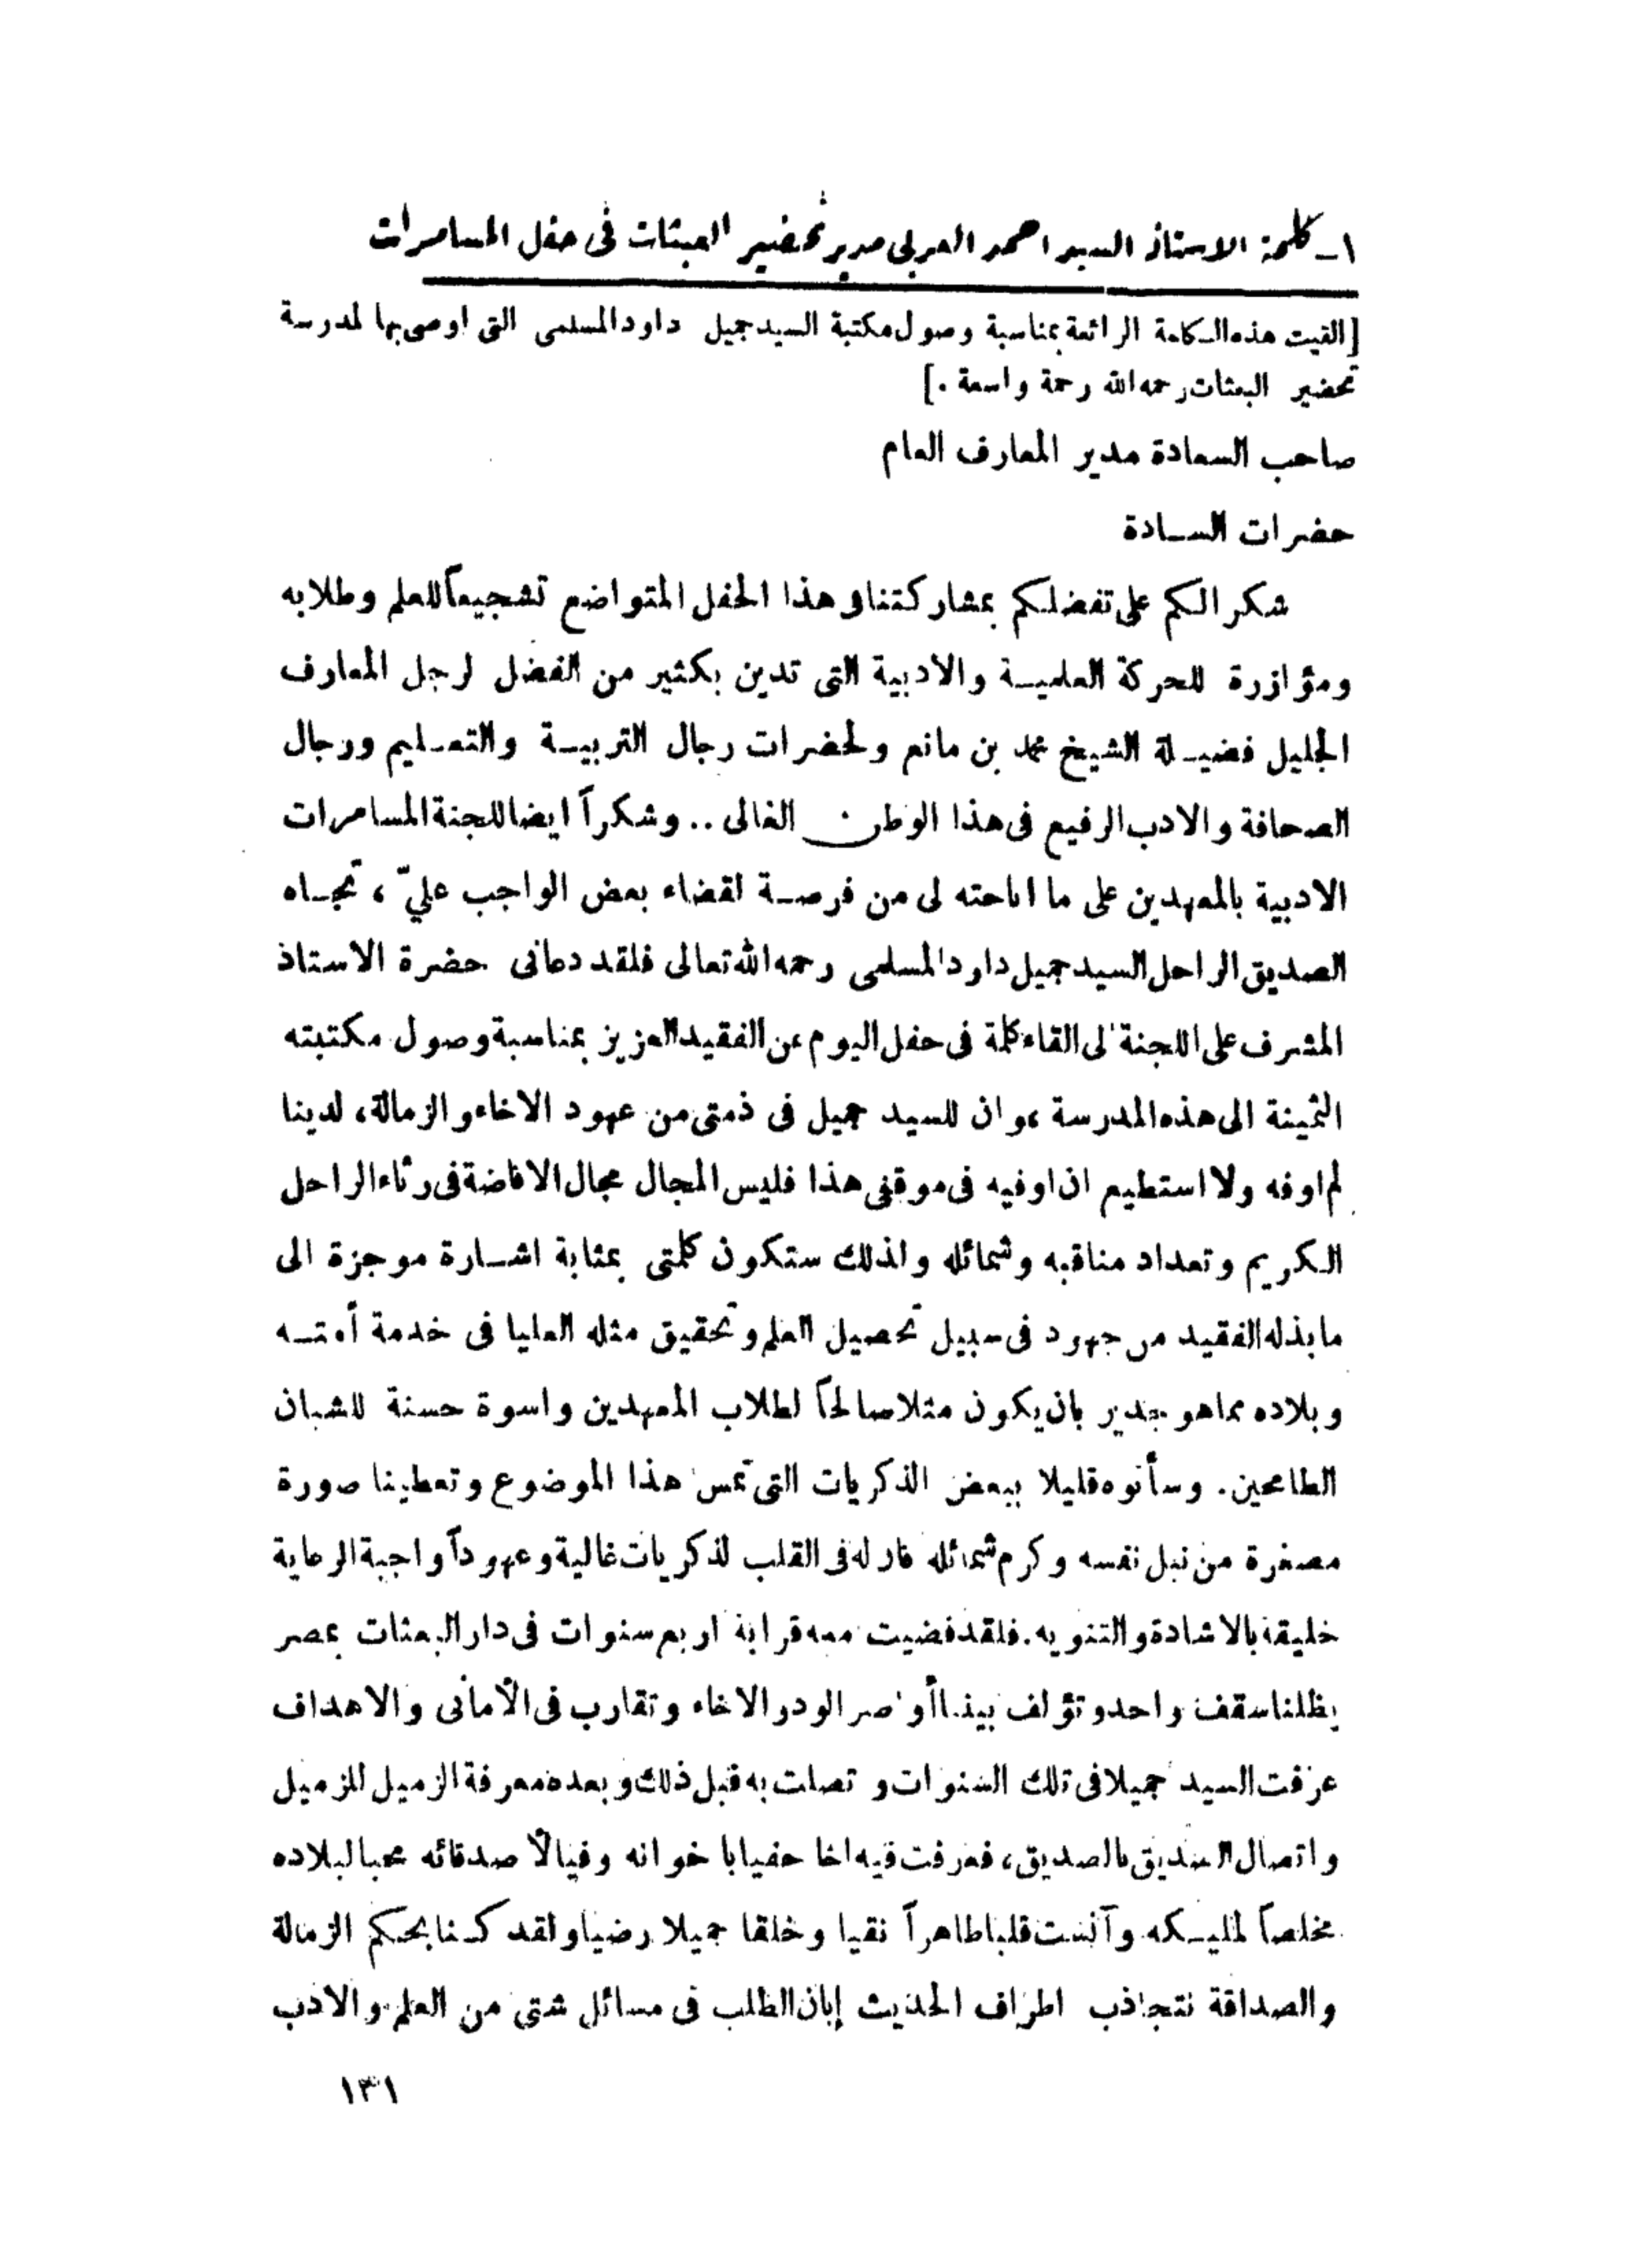 ١ - كلمة الاستاذ السيد احمد العربى مدير تحضير البعثات فى حفل المسامرات
[القيت هذه الكلمة الرائعة بمناسبة وصول مكتبة السيد جميل داود المسلمى التى اوصى بها لمدرسة
تحضير البعثات رحمه الله رحمة واسعة .]
صاحب السعادة مدير المعارف العام
حضرات السادة
شكرا لكم على تفضلكم بمشاركتنا فى هذا الحفل المتواضع تشجيعاً للعلم وطلابه
ومؤازرة للحركة العلمية والادبية التى تدين بكثير من الفضل لرجل المعارف
الجليل فضيلة الشيخ محمد بن مانع ولحضرات رجال التربية والتعليم ورجال
الصحافة والادب الرفيع فى هذا الوطن الغالى .. وشكراً ايضا للجنة المسامرات
الادبية بالمعهدين على ما اتاحته لى من فرصة لقضاء بعض الواجب عليّ ، تجاه
الصديق الراحل السيد جميل داود المسلمى رحمه الله تعالى فلقد دعانى حضرة الاستاذ
المشرف على اللجنة الى القاء كلمة فى حفل اليوم عن الفقيد العزيز بمناسبة وصول مكتبته
الثمينة الى هذه المدرسة ، وان للسيد جميل فى ذمتى من عهود الاخاء والزمالة ، لدينا
لم اوفه ولا استطيع ان اوفيه فى موقفى هذا فليس المجال مجال الافاضة فى رثاء الراحل
الكريم وتعداد مناقبه وشمائله ولذلك ستكون كلمتى بمثابة اشارة موجزة الى
ما بذله الفقيد من جهود فى سبيل تحصيل العلم وتحقيق مثله العليا فى خدمة أمته
وبلاده مما هو جدير بان يكون مثلا صالحاً لطلاب المعهدين واسوة حسنة للشبان
الطامحين . وسأنوه قليلا ببعض الذكريات التى تمس هذا الموضوع وتعطينا صورة
مصغرة من نبل نفسه وكرم شمائله فان له فى القلب لذكريات غالية وعهوداً واجبة الرعاية
خليقة بالاشادة والتنويه . فلقد قضيت معه قرابة اربع سنوات فى دار البعثات بمصر
يظلنا سقف واحد وتؤلف بيننا أواصر الود والاخاء وتقارب فى الأمانى والاهداف
عرفت السيد جميلا فى تلك السنوات و تصلت به قبل ذلك وبعده معرفة الزميل للزميل
واتصال الصديق بالصديق ، فعرفت فيه اخا حفيا باخوانه وفيا لأصدقائه محبا لبلاده
مخلصاً لمليكه وآنست قلبا طاهراً نقيا وخلقا جميلا رضيا ولقد كنا بحكم الزمالة
والصداقة نتجاذب اطراف الحديث إبان الطلب فى مسائل شتى من العلم والادب
١٣١